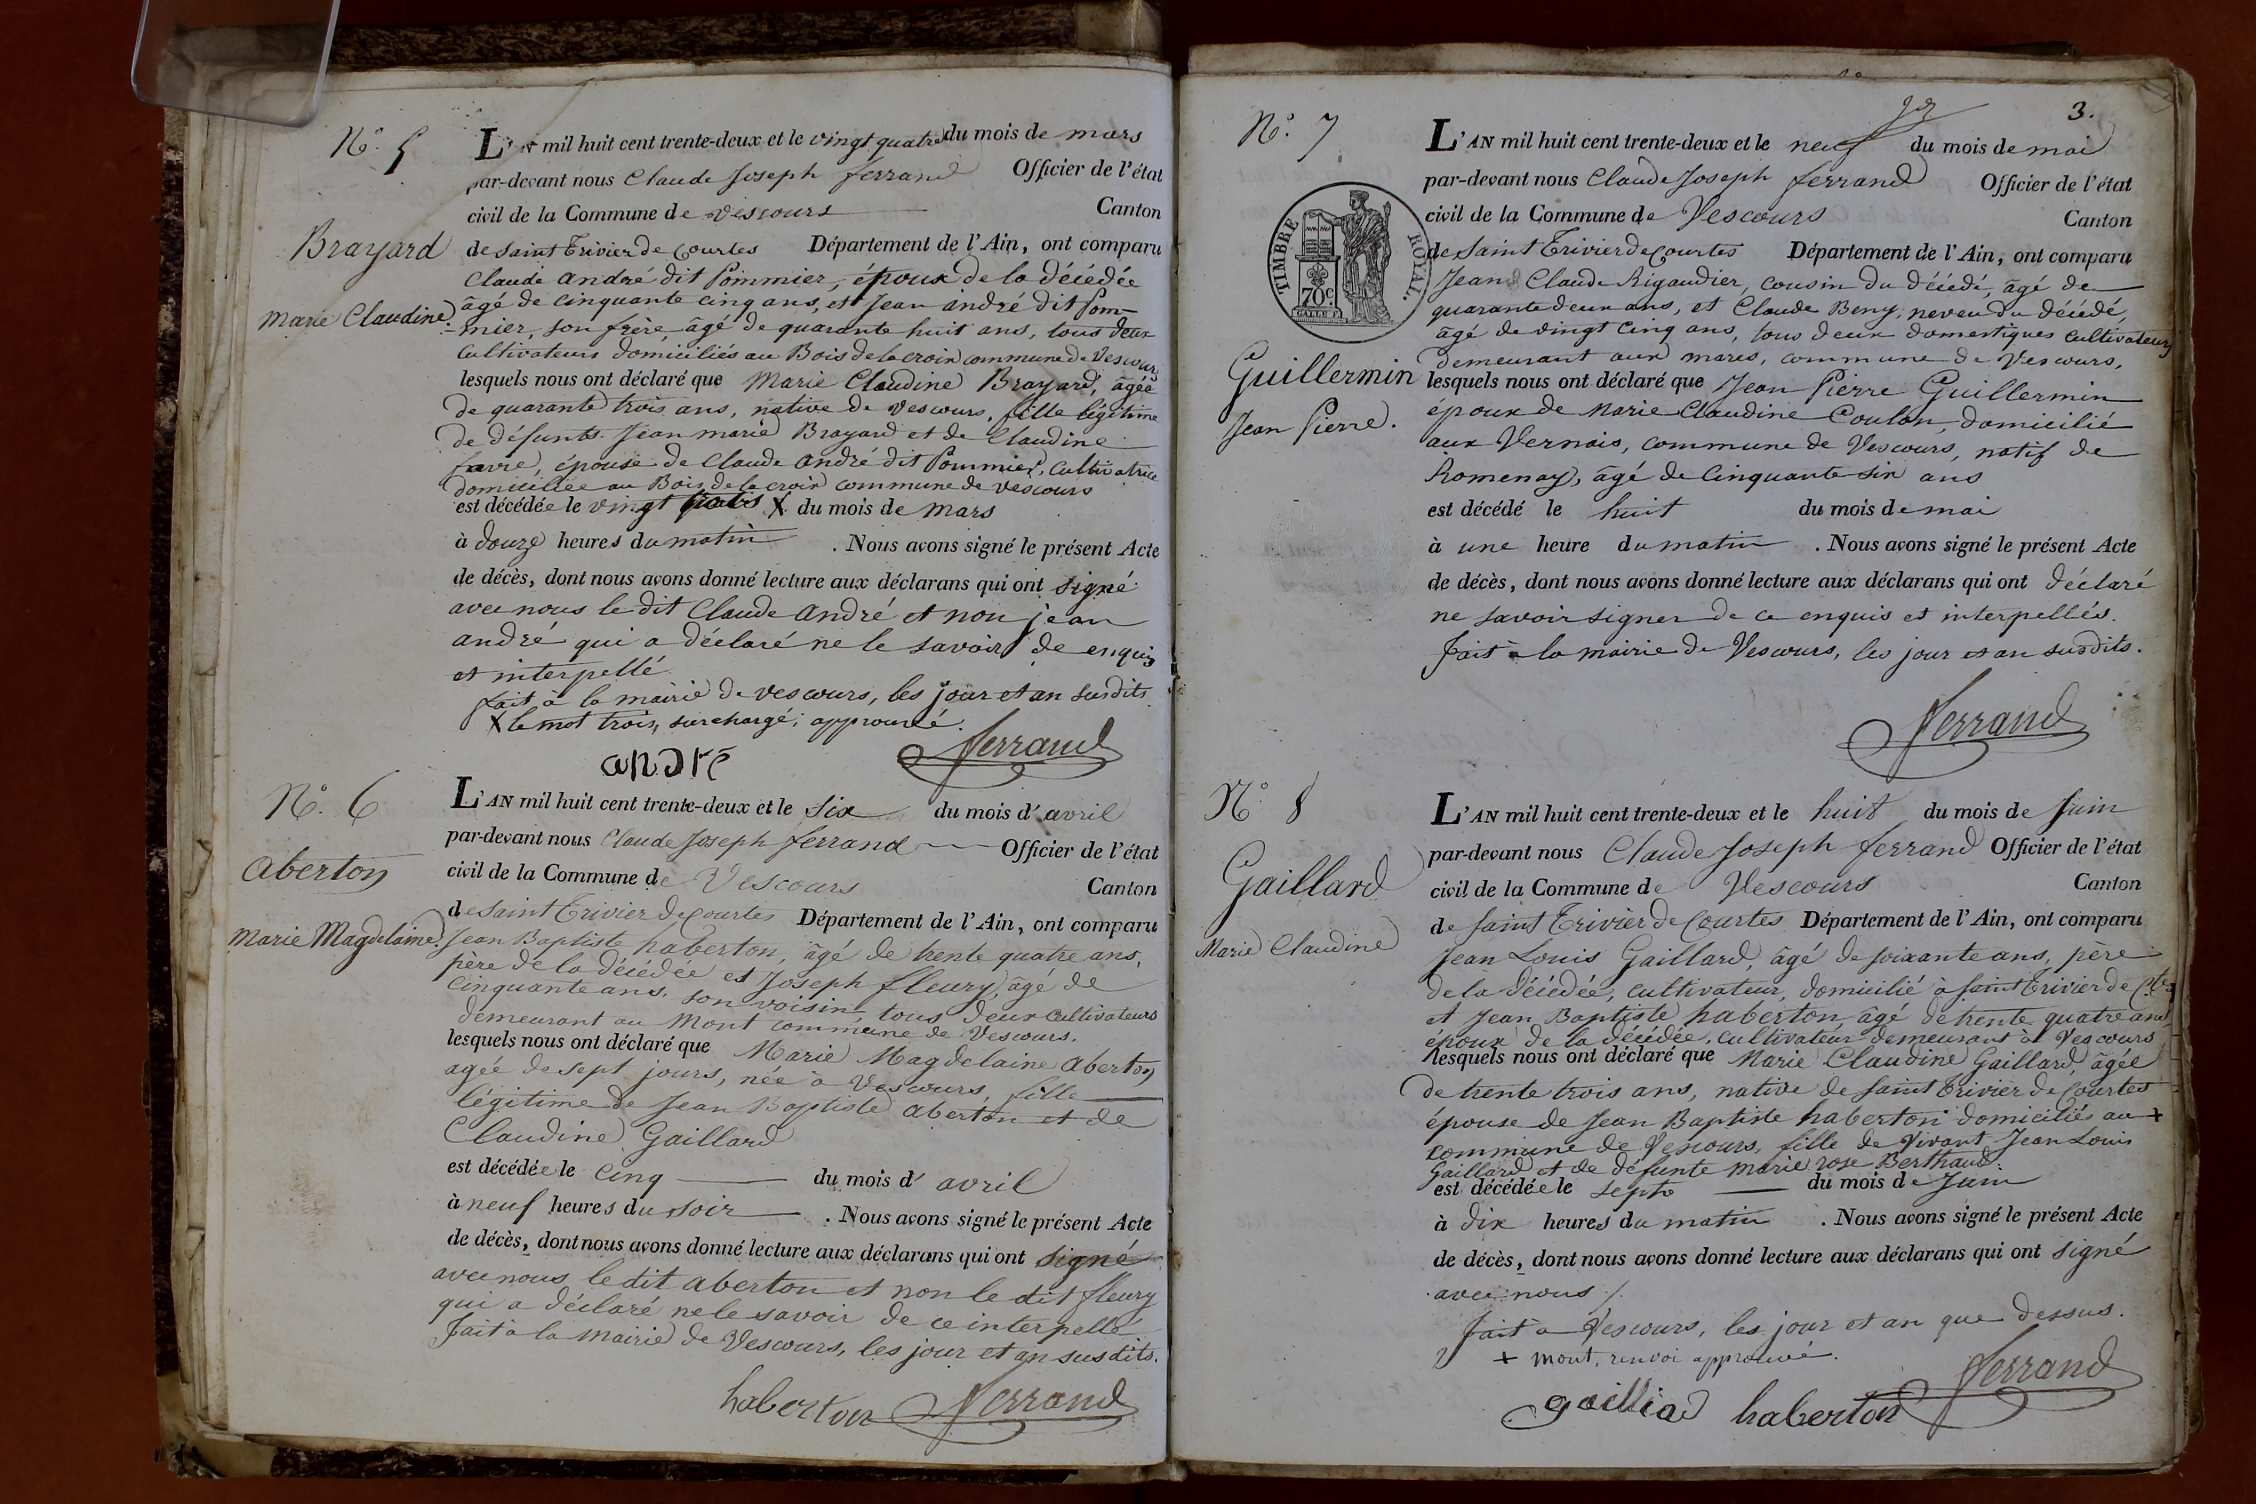 N.° 5
L'AN mil huit cent trente-deux et le vingt quatre du mois de mars
par-devant nous Claude Joseph ferrand Officier de l'état
civil de la Commune de vescours Canton
de Saint Trivier de Courtes Département de l'Ain, ont comparu
Brayard
Marie Claudine
Claude andré dit Pommier, époux de la décédée
âgé de cinquante cinq ans, et Jean andré dit Pom-
-mier, son frère âgé de quarante huit ans, tous deux
cultivateurs domiciliés au Bois de la croix commune de Vescours,
lesquels nous ont déclaré que Marie Claudine Brayard, âgée
de quarante trois ans, native de vescours, fille légitime
de défunts Jean marie Brayard et de Claudine
favre, épouse de Claude andré dit Pommier, cultivatrice
domiciliée au Bois de la croix commune de vescours
est décédée le vingt trois X du mois de mars
à douze heures du matin . Nous avons signé le présent Acte
de décès, dont nous avons donné lecture aux déclarans qui ont signé
avec nous le dit Claude andré et non jean
andré qui a déclaré ne le savoir de enquis
et interpellé
fait à la mairie de vescours, les jour et an susdits
X le mot trois, surchargé, approuvé.
andré ferrand
N.° 6
L'AN mil huit cent trente-deux et le six du mois d'avril
par-devant nous Claude Joseph ferrand Officier de l'état
civil de la Commune de Vescours Canton
de Saint Trivier de Courtes Département de l'Ain, ont comparu
aberton
Marie Magdelaine.
Jean Baptiste haberton, âgé de trente quatre ans,
père de la décédée et Joseph fleury, âgé de
cinquante ans, son voisin tous deux cultivateurs
demeurant au Mont commune de Vescours.
lesquels nous ont déclaré que Marie Magdelaine aberton
agée de sept jours, née à Vescours, fille
légitime de Jean Baptiste aberton et de
Claudine Gaillard
est décédée le cinq du mois d'avril
à neuf heures du soir . Nous avons signé le présent Acte
de décès, dont nous avons donné lecture aux déclarans qui ont signé
avec nous le dit aberton et non le dit fleury
qui a déclaré ne le savoir de ce interpellé
fait à la mairie de Vescours, les jour et an susdits.
haberton ferrand
3.
N.° 7
L'AN mil huit cent trente-deux et le neuf du mois de mai
par-devant nous Claude Joseph ferrand Officier de l'état
civil de la Commune de Vescours Canton
de Saint Trivier de Courtes Département de l'Ain, ont comparu
TIMBRE ROYAL.
70c.
Guillermin
Jean Pierre.
Jean Claude Rigaudier, cousin du décédé, âgé de
quarante deux ans, et Claude Beny, neveu du décédé,
âgé de vingt cinq ans, tous deux domestiques cultivateurs
demeurant aux mares, commune de Vescours,
lesquels nous ont déclaré que Jean Pierre Guillermin
époux de Marie Claudine Coulon, domicilié
aux Vernais, commune de Vescours, natif de
Romenay, âgé de cinquante six ans
est décédé le huit du mois de mai
à une heure du matin . Nous avons signé le présent Acte
de décès, dont nous avons donné lecture aux déclarans qui ont déclaré
ne savoir signer de ce enquis et interpellés.
fait à la mairie de Vescours, les jour et an susdits.
ferrand
N.° 8
L'AN mil huit cent trente-deux et le huit du mois de Juin
par-devant nous Claude Joseph ferrand Officier de l'état
civil de la Commune de Vescours Canton
de Saint Trivier de Courtes Département de l'Ain, ont comparu
Gaillard
Marie Claudine
Jean Louis Gaillard, âgé de soixante ans, père
de la décédée, cultivateur, domicilié à Saint Trivier de Ctes
et Jean Baptiste haberton âgé de trente quatre ans
époux de la décédée, cultivateur demeurant à Vescours
lesquels nous ont déclaré que Marie Claudine Gaillard, âgée
de trente trois ans, native de Saint Trivier de Courtes
épouse de Jean Baptiste haberton domiciliés au +
commune de Vescours, fille de Vivant Jean Louis
Gaillard et de défunte Marie rose Berthaud.
est décédée le septe du mois de Juin
à dix heures du matin . Nous avons signé le présent Acte
de décès, dont nous avons donné lecture aux déclarans qui ont signé
avec nous /.
fait à Vescours, les jour et an que dessus.
+ mont, renvoi approuvé.
ferrand
gaillia d haberton